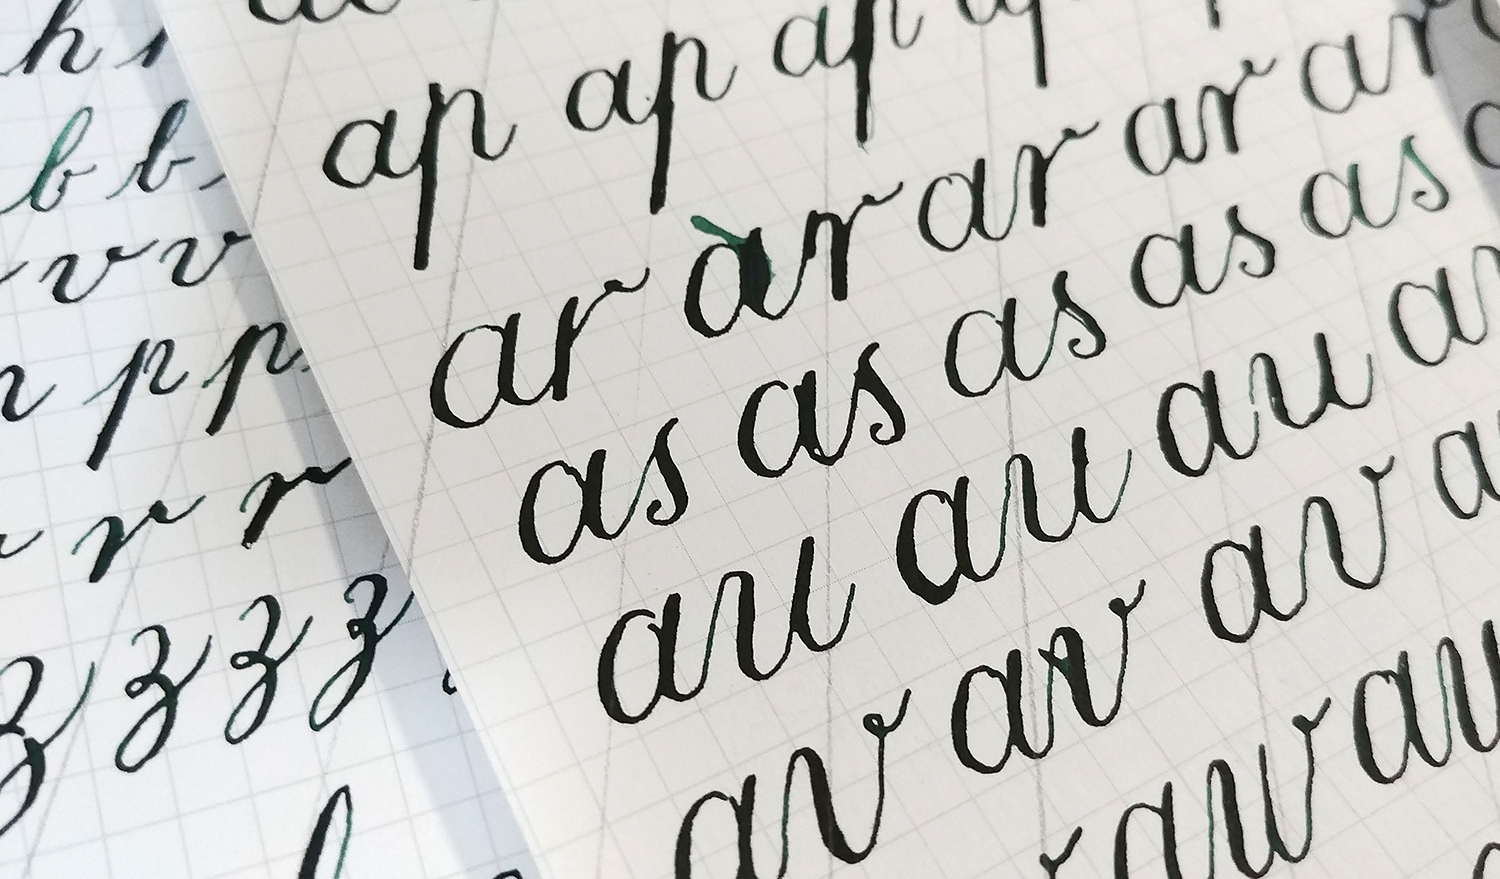 h
b b
v v
n p p
r r
z z z z
ap ap ap
ar ar ar ar ar
as as as as as
au au au
av av av
aw